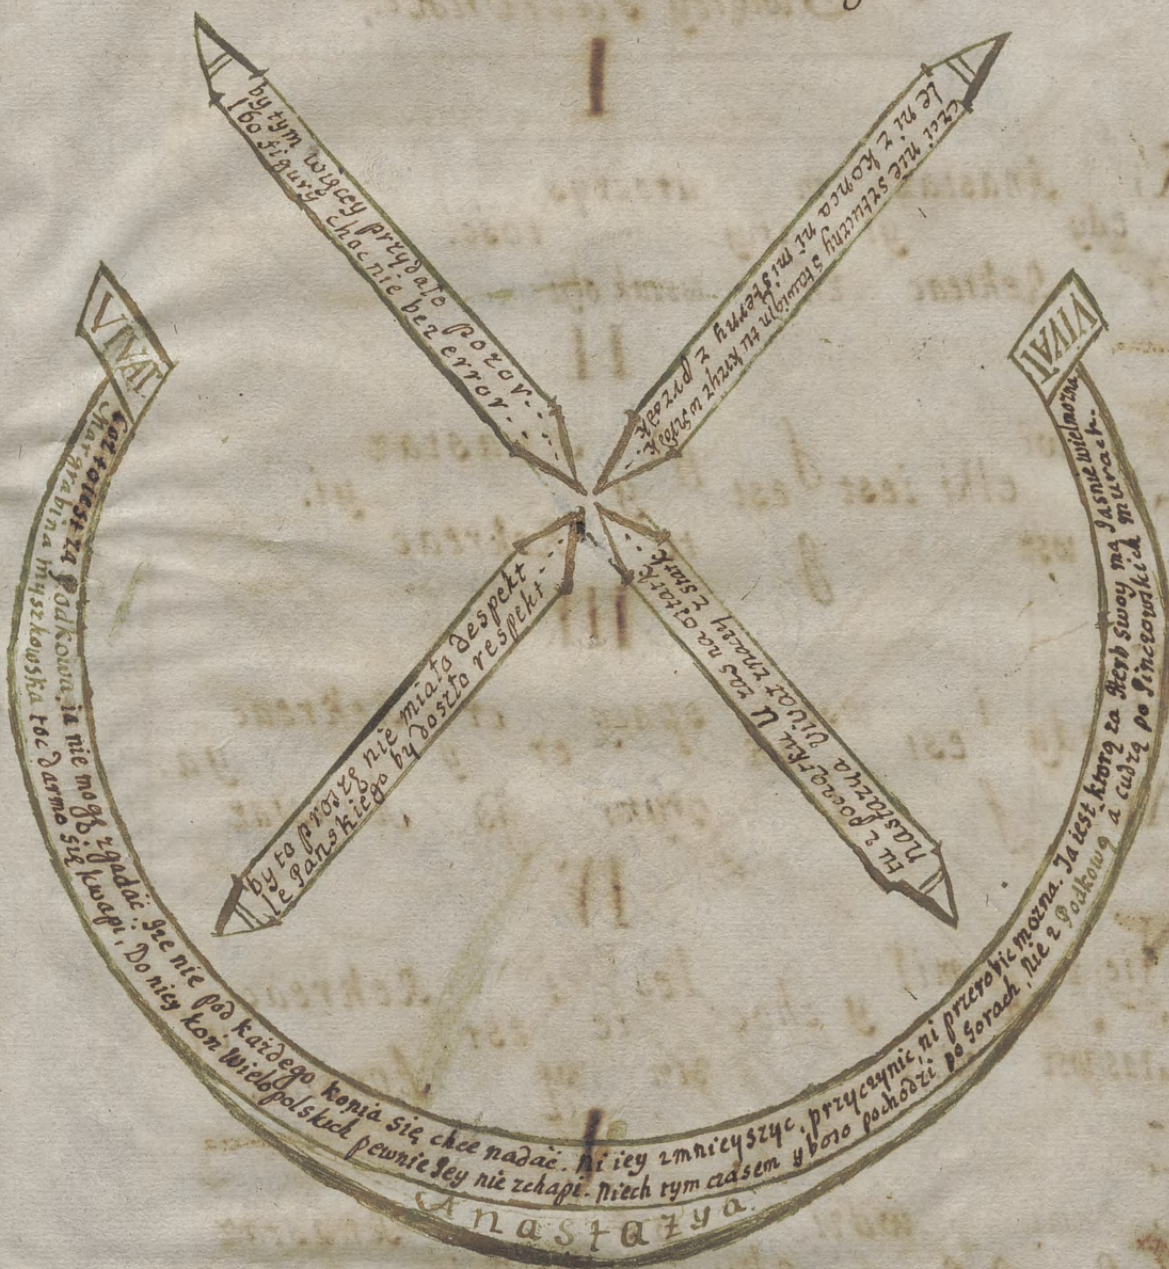 by tym więcey przydało pozor...
lbo figury choc nie bez error...
czci nie sztuczny stawiąm tu krzyż w śrzodk.
le ni z konca ni misterny z przodk.
VIVAT
VIVAT
by to proszę nie miało despekt
le Panskiego by doszło respekt
tu z początku U zas na ostatk.
nastazya vivat znaczy z stark.
Coż to iest za Podkowa, ia nie mogę zgadać. Jze nie pod każdego konia się chce nadać. Ni iey zmnieyszyc, przyczynic, ni przerobic mozna. Ja iest ktorą za Herb swoy ma Jasnie wielmozna
Margrabina myszkowska toć darmo się kwapi, Do niey koń Wielopolskich pewnie Jey nie zchapi. Niech tym czasem y boso pochodzi po Gorach, Nie z Podkową a cudzą po Pinczowskich murach.
Anastazya.